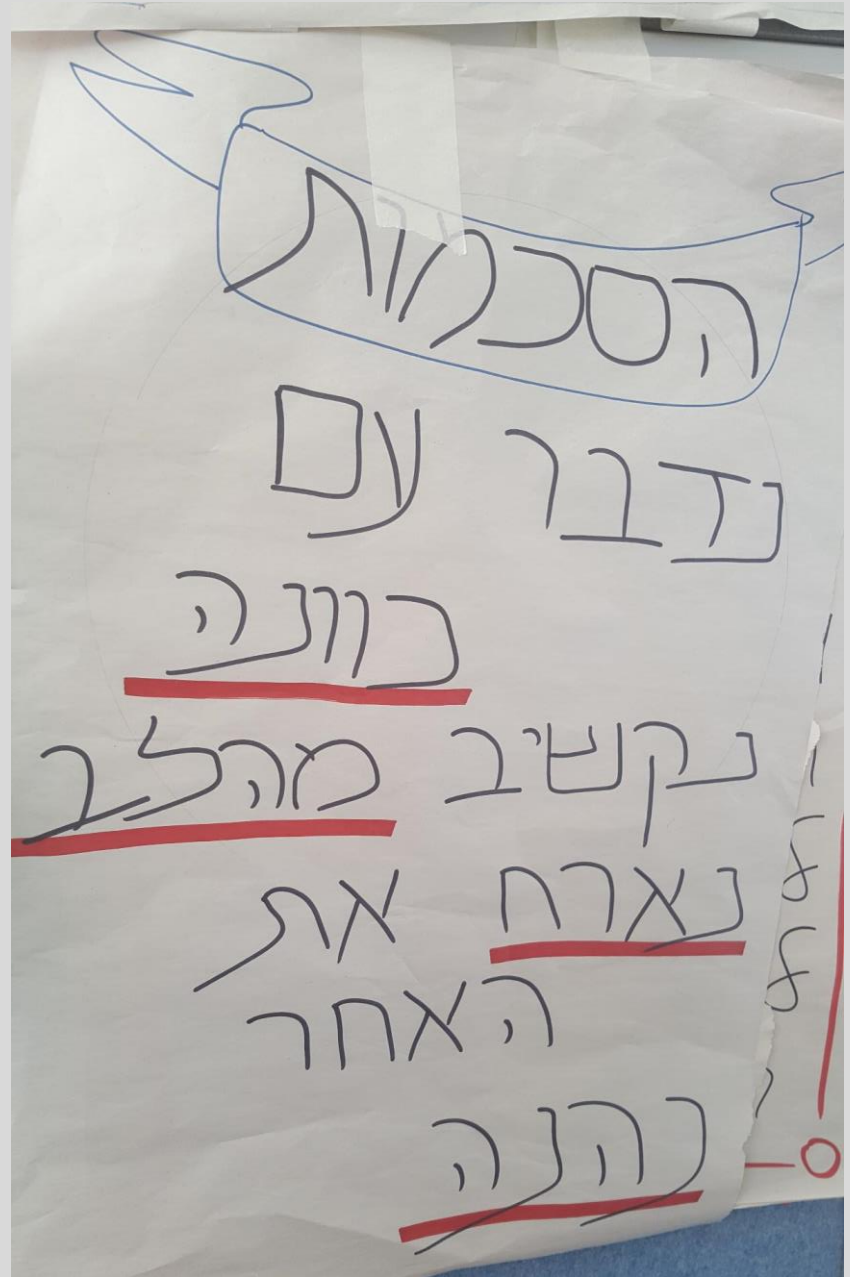 הסכמות
נדבר עם
כוונה
נקשיב מהלב
נארח את
האחר
נהנה